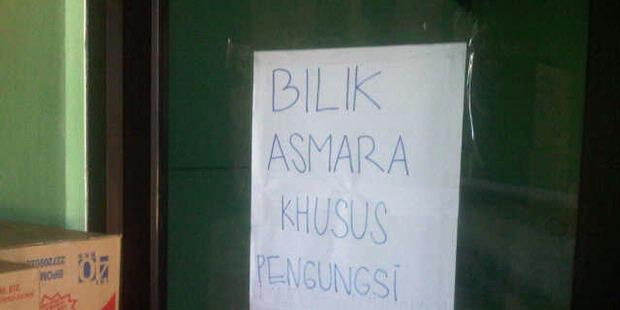 BILIK
ASMARA
KHUSUS
PENGUNGSi
BPOM